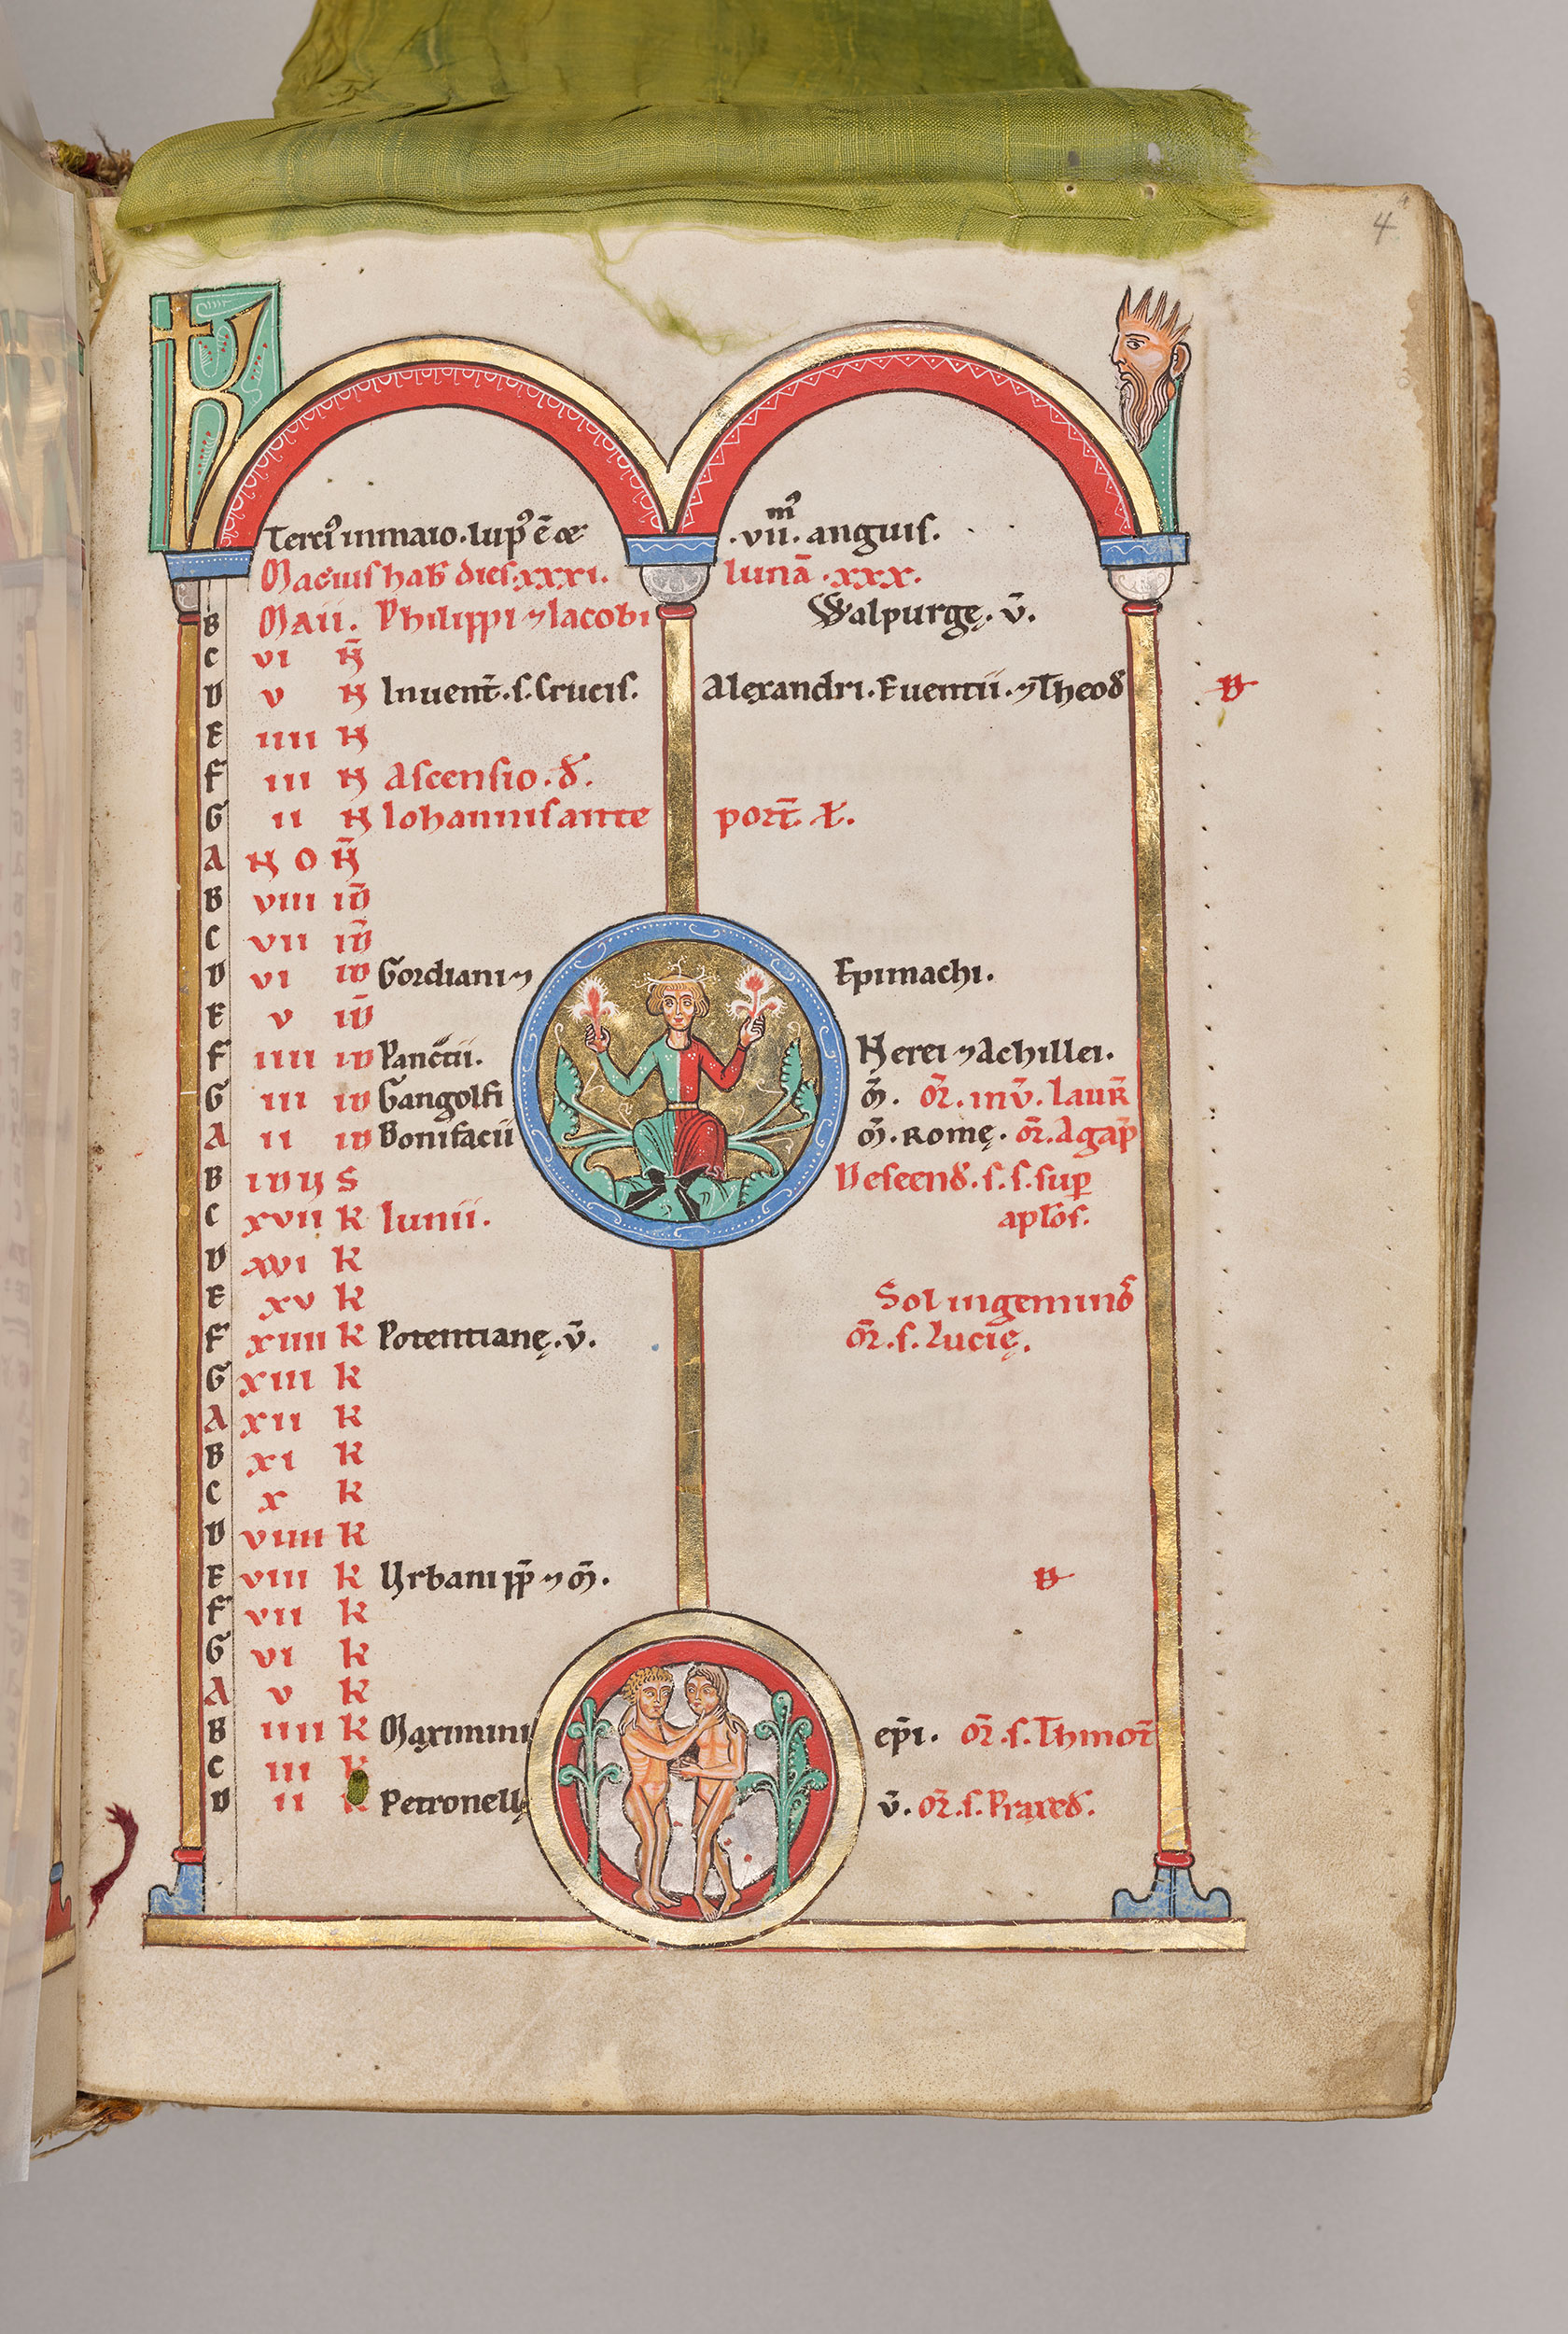 4
KL
Terci᷒ in maio. lup᷒ ē & .vii.ᵐ᷒ anguis.
Maᷤius hab̄ dies xxxi. lunā .xxx.
B Maii. Philippi ⁊ Iacobi Walpurgę. v̄.
C VI N̄
D V N Inuent̄. s. Crucis. Alexandri. Euentii. ⁊ Theoꝺ̄
E IIII N
F III N Ascensio. dͫ.
G II N Iohannis ante port̄ ł.
A N O N̄
B VIII ID̄
C VII ID̄
D VI ID Gordiani ⁊ Epimachi.
E V ID̄
F IIII ID Panc̄tii. Nerei ⁊ Achillei.
G III ID Gangolfi m̄. or̄. inv̄. laur̄
A II ID Bonifacii m̄. Romę. or̄. Agap̄
B IDUS Descenꝺ̄. s. s. sup̄
C XVII K Iunii. apl̄os.
D XVI K
E XV K Sol in geminoꝭ
F XIIII K Potentianę. v̄. or̄. s. Lucię.
G XIII K
A XII K
B XI K
C X K
D VIIII K
E VIII K Urbani pp̄ ⁊ m̄.
F VII K
G VI K
A V K
B IIII K Maximini ep̄i. or̄. s. Thmot̄
C III K
D II K Petronellę v̄. or̄. s. Praxeꝺ̄.